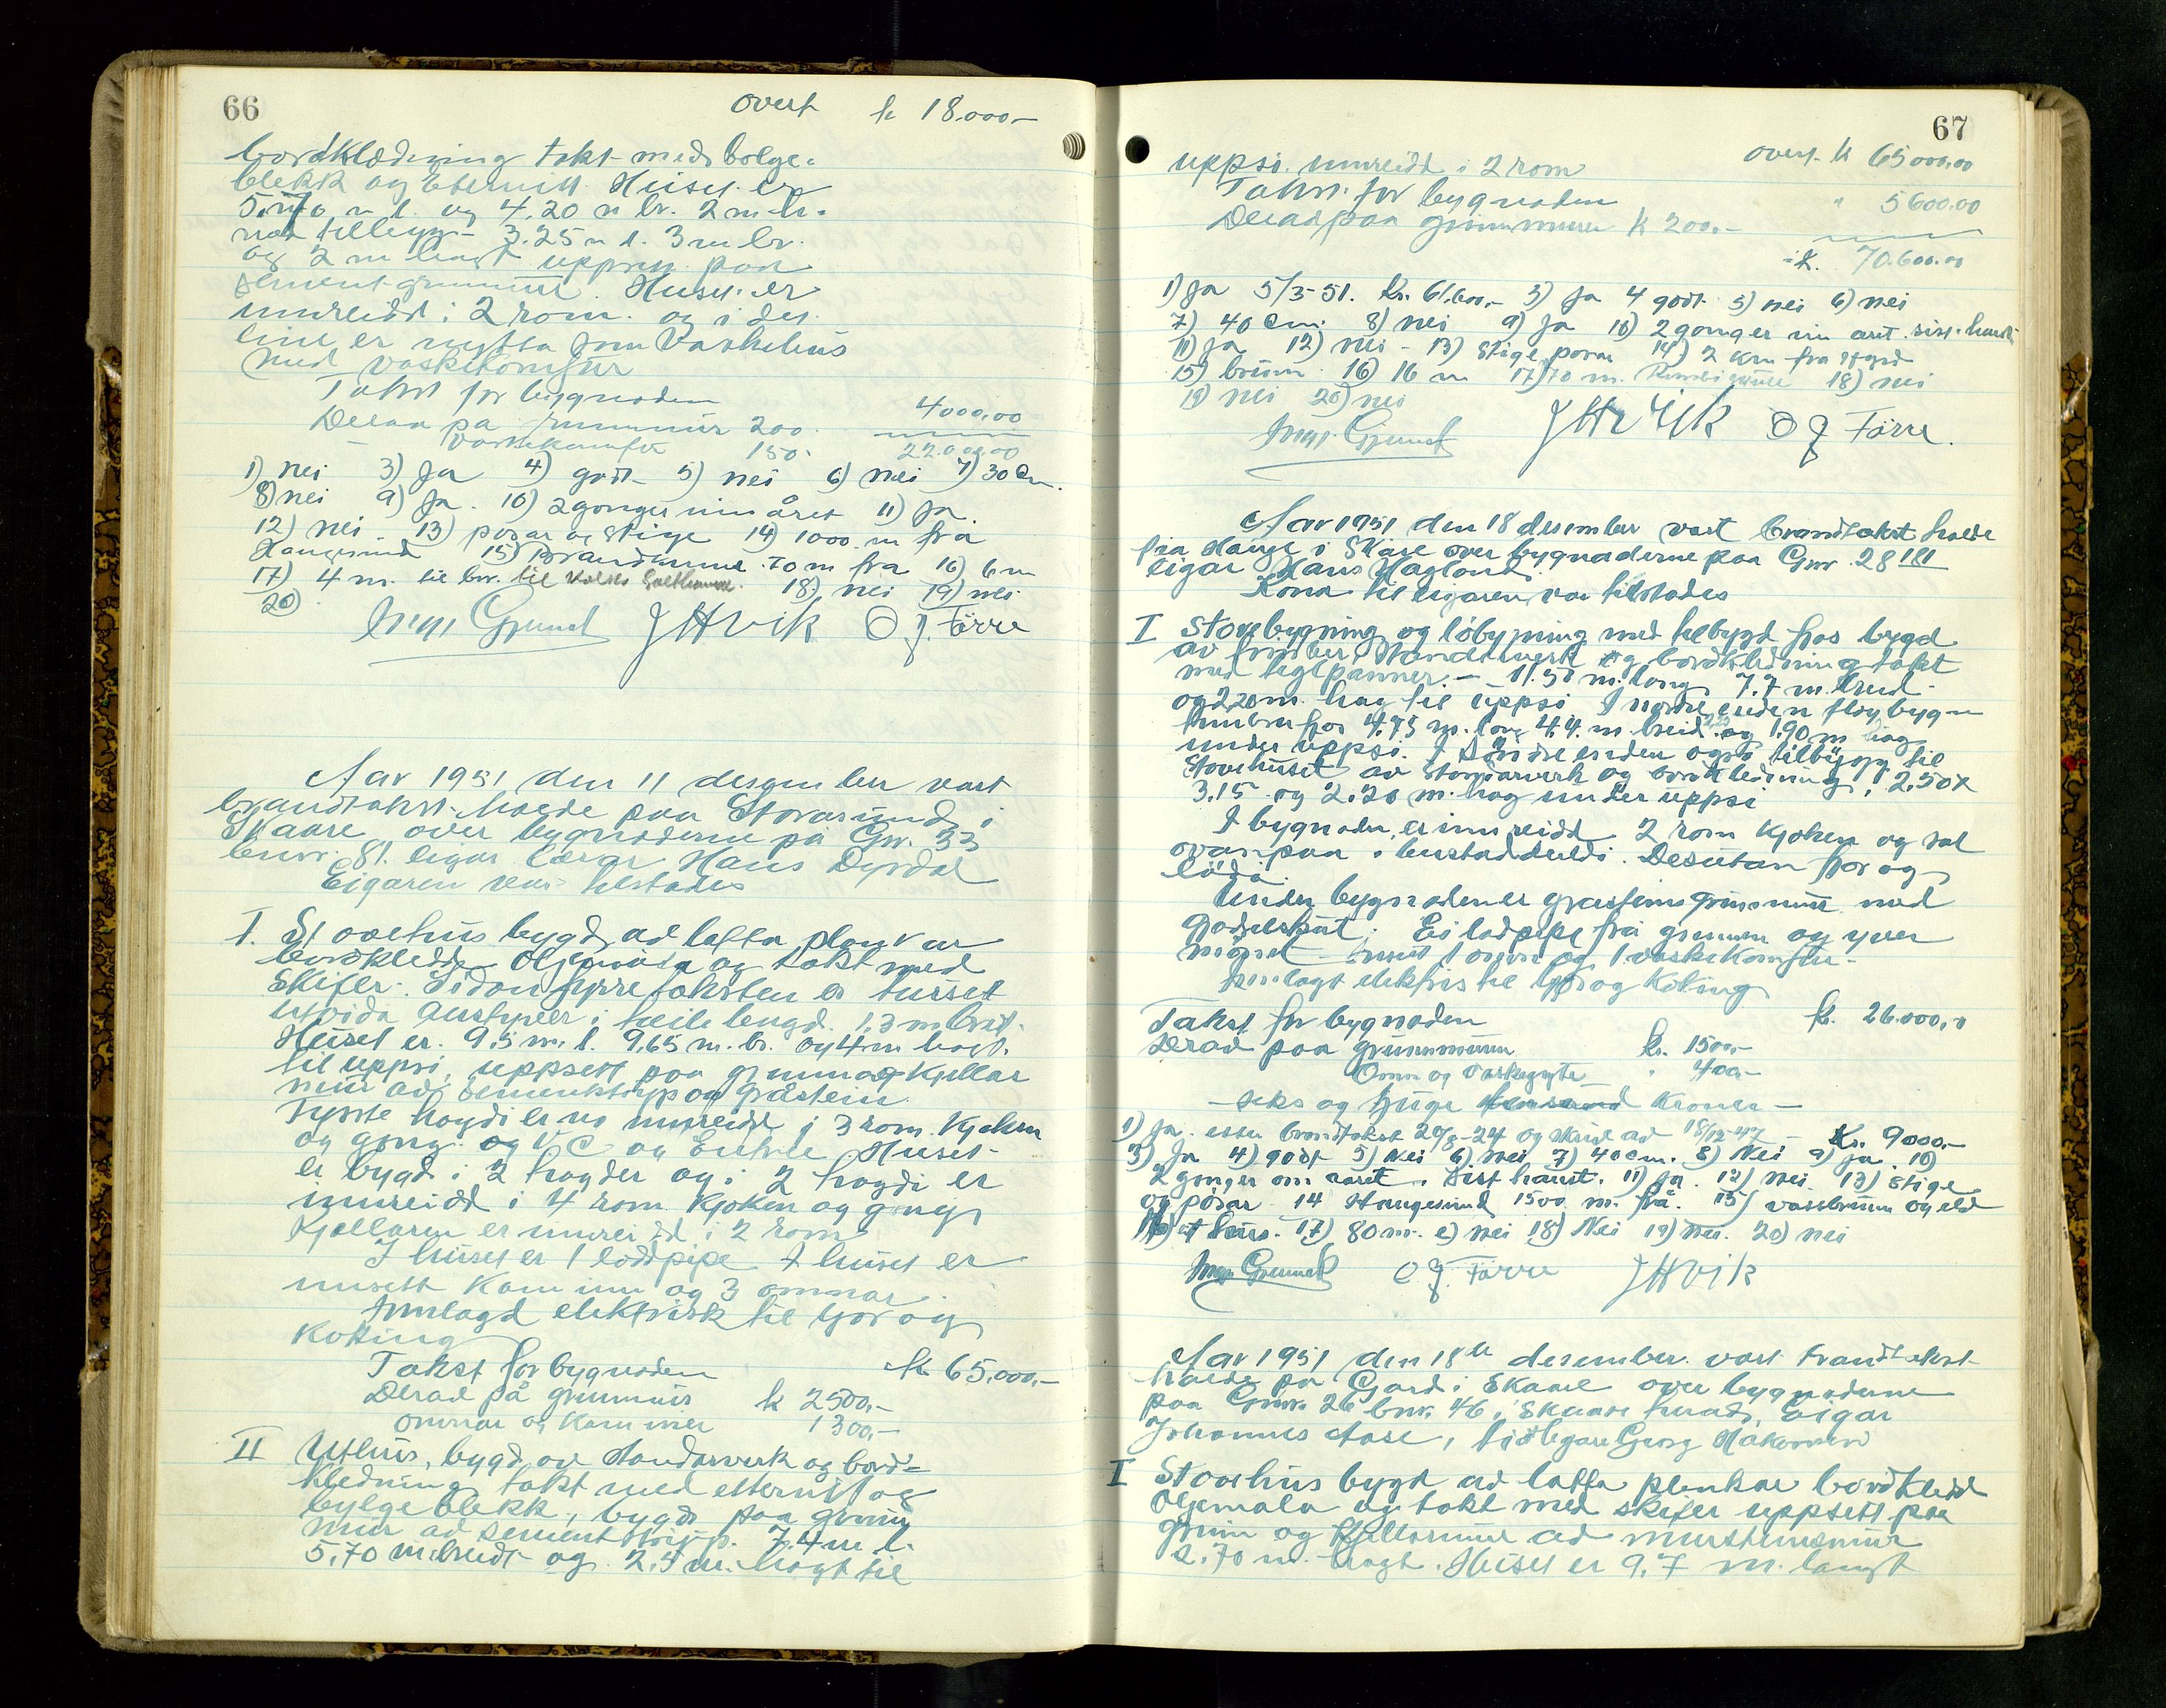 66
overf k 18.000,-
bordklædning takt med bølge-
blekk og Eternitt. Huset er
5.70 m l. og 4,20 m br. 2 m h.
med tillegg 3.25 m l. 3 m br.
og 2 m høgt uppsett paa
sement grunnmur. Huset er
innreidd i 2 rom og i det
eine er nytta som Vaskehus
med vaskekomfur
Takst for bygnaden 4000,00
Derav på grunnmur 200.
Vaskekomfur 150. 22.000,00
1) nei 3) Ja 4) godt 5) nei 6) nei 7) 30 Cm.
8) nei 9) Ja. 10) 2 gonger um året 11) Ja.
12) nei - 13) posar og stige 14) 1000. m fra
Haugesund 15) brandkumme. 70 m fra 16) 6 m
17) 4 m. til br. til 18) nei 19) nei
20)
J H Vik O J. Førre
Aar 1951 den 11 desember vart
brandtakst halde paa Storasund i
Skaare over bygnaderne på Gnr. 33
bnr. 81. eigar lærar Hans Dyrdal
Eigaren var tilstades
I. Stovehus bygd ad lafta plankar
bordkledd Oljemåla og takt med
Skifer. Sidan fyrre taksten er huset
utvida austyver i heile lengd. 1,3 m brit.
Huset er. 9,5 m. l. 9,65 m. br. og 4 m høgt.
til uppsi, uppsett paa grunn og Kjellar
mur ad sementstøyp og gråstein.
Fyrste høgdi er no innreidd i 3 rom. Kjøken
og gong. og V C og Entre. Huset
er bygd i 2 høgder og i 2 høgdi er
innreidd i 4 rom Kjøken og gong
Kjellaren er innreidd i 2 rom
I huset er 1 loddpipe I huset er
innsett Kaminn og 3 omnar.
Innlagd elektrisk til ljos og
Koking
Takst for bygnaden kr 65.000,-
Derav på grunnmur k 2500,-
omnar og Kaminer 1300,-
II Uthus, bygd av standarverk og bord=
kledning takt med etternitt og
bylgeblekk, bygd paa grunn
mur ad sement støyp. 7.4 m l.
5,70 m. breidt og 2.5 m. høgt til
67
overf. k 65000,00
uppsi. innreidd i 2 rom
Takst for bygnaden " 5600.00
Derav paa grunnmuren k 200.-
= k. 70.600.00
1) Ja 5/3-51. Kr. 61.600,- 3) Ja 4 godt 5) nei 6) nei
7) 40 Cm. 8) nei 9) Ja 10) 2 gonger um aret. sist haust
11) Ja 12) nei - 13) Stige, posar 14) 2 Km fra
15) brunn. 16) 16 m 17) 70 m. 18) nei
19) nei 20) nei
J H Vik O J Førre.
Aar 1951 den 18 desember vart brandtakst halde
pia Hauge i Skåre over bygnaderne paa Gnr. 28
eigar Hans Hagland
Kona til eigaren var tilstades
I Stovebygning og löbygning med tilbygd fjos bygd
av timber, standarverk og bordkledning takt
med teglpanner. - 11.50 m. long, 7.7 m. breid
og 2,20 m. høg til uppsi. I nordre enden tilbygn
timbra fjos 4.75 m. long 4,4 m. breid og 1,90 m høg
under uppsi. I söndre enden også tilbygg til
Stovehuset av standarverk og bordkledning, 2,50 x
3.15 og 2.20 m. høg under uppsi
I bygnaden er innreidd 2 rom Kjøken og sal
ovanpaa i bustaddeildi. Desutan fjos og
löda.
Under bygnaden er graasteins grunnmur med
gjødselskut. Ei lodpipe frå grunnen og yver
mønet. Innsett 1 omn og 1 vaskekomfur.
Innlagt elektris til ljos og Koking
Takst for bygnaden k. 26.000,00
Derav paa grunnmuren k. 1500,-
Omn og vaskegryte " 400,-
- seks og tjuge tusend Kroner -
1) Ja. etter brandtakst 20/8-24 og skriv ad 18/12-47 - Kr. 9000,-
3) Ja 4) godt 5) Nei 6) nei 7) 40 cm. 8) Nei 9) ja. 10)
2 gonger om aaret. Sist haust. 11) Ja. 12) nei. 13) Stige
og posar 14 Haugesund 1500 m. frå. 15) vassbrunn og eld
16) at hus. 17) 80 m. e) nei 18) Nei 19) nei. 20) nei
O J. Førre J H Vik
Aar 1951 den 18de desember vart brandtakst
halde på Gard i Skaare over bygnaderne
paa Gnr. 26 bnr. 46 i Skaare herad, Eigar
Johannes Aase, tidlegare Georg Håkonsen
I Stovehus bygt ad lafta plankar bordkledd
Oljemala og takt med skifer uppsett paa
grunn og Kjellarmur ad mursteinsmur
2.70 m. høgt. Huset er 9,7 m. langt